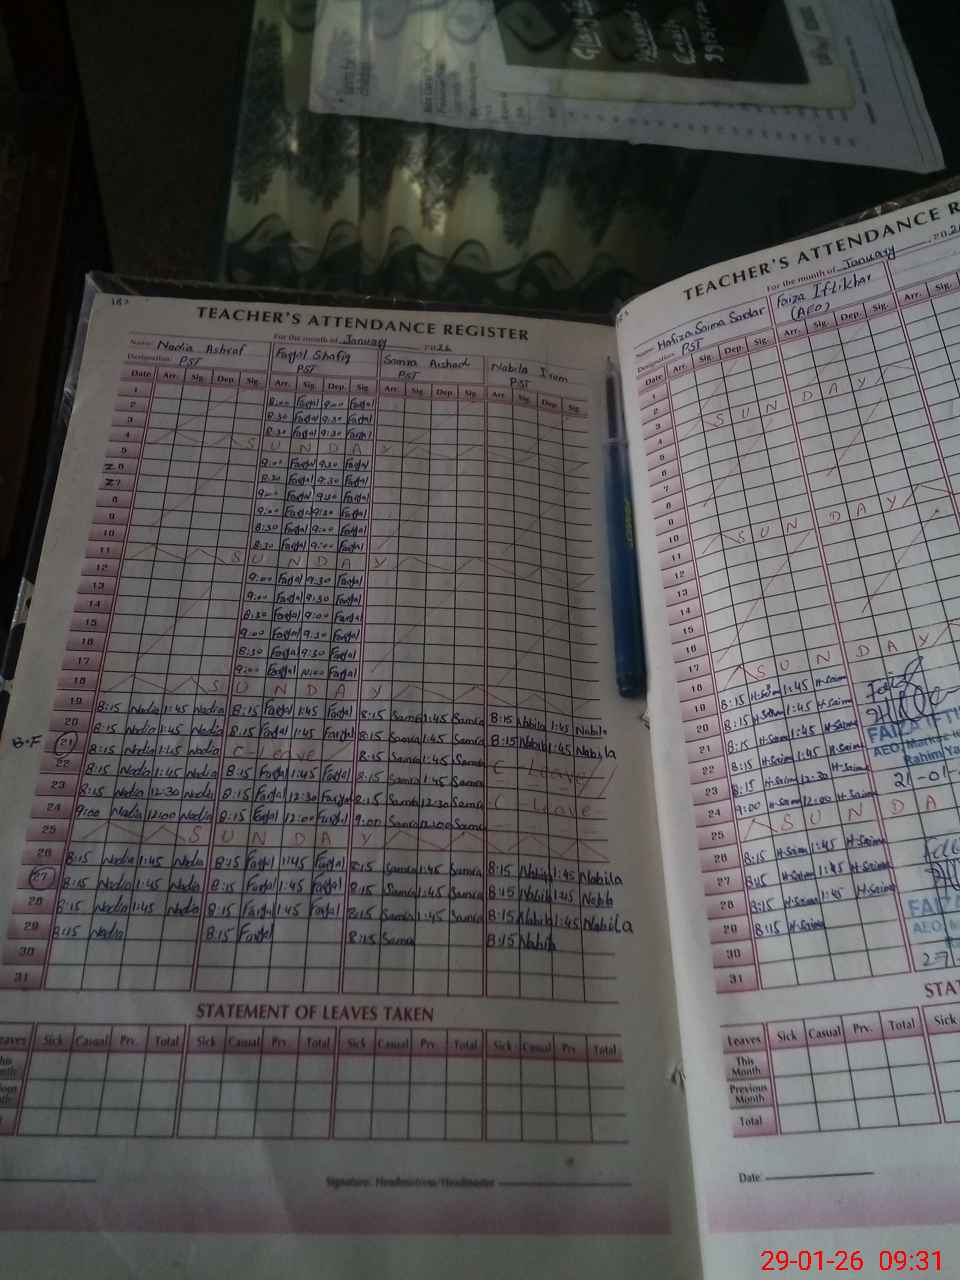 TEACHER'S ATTENDANCE REGISTER
For the month of January 2026
Name: Nadia Ashraf Farjal Shafiq Samra Arshad Nabila Irum
Designation: PST PST PST PST
Date Arr. Sig. Dep. Sig. Arr. Sig. Dep. Sig. Arr. Sig. Dep. Sig. Arr. Sig. Dep. Sig.
1
2 8:00 Farjal 9:00 Farjal
3 8:30 Farjal 9:30 Farjal
4 8:30 Farjal 9:30 Farjal
SUNDAY
5
6 9:00 Farjal 9:30 Farjal
7 8:30 Farjal 9:30 Farjal
8 9:00 Farjal 9:30 Farjal
9 9:00 Farjal 9:30 Farjal
10 8:30 Farjal 9:00 Farjal
11 8:30 Farjal 9:00 Farjal
SUNDAY
12 9:00 Farjal 9:30 Farjal
13 9:00 Farjal 9:30 Farjal
14 8:30 Farjal 9:00 Farjal
15 9:00 Farjal 9:30 Farjal
16 8:30 Farjal 9:30 Farjal
17 9:00 Farjal 10:00 Farjal
18 SUNDAY
19 8:15 Nadia 1:45 Nadia 8:15 Farjal 1:45 Farjal 8:15 Samra 1:45 Samra 8:15 Nabila 1:45 Nabila
20 8:15 Nadia 1:45 Nadia 8:15 Farjal 1:45 Farjal 8:15 Samra 1:45 Samra 8:15 Nabila 1:45 Nabila
B.F 21 8:15 Nadia 1:45 Nadia C-Leave 8:15 Samra 1:45 Samra C-Leave
22 8:15 Nadia 1:45 Nadia 8:15 Farjal 1:45 Farjal 8:15 Samra 1:45 Samra
23 8:15 Nadia 12:30 Nadia 8:15 Farjal 12:30 Farjal 8:15 Samra 12:30 Samra C-Leave
24 9:00 Nadia 12:00 Nadia 8:15 Farjal 12:00 Farjal 9:00 Samra 12:00 Samra
25 SUNDAY
26 8:15 Nadia 1:45 Nadia 8:15 Farjal 1:45 Farjal 8:15 Samra 1:45 Samra 8:15 Nabila 1:45 Nabila
27 8:15 Nadia 1:45 Nadia 8:15 Farjal 1:45 Farjal 8:15 Samra 1:45 Samra 8:15 Nabila 1:45 Nabila
28 8:15 Nadia 1:45 Nadia 8:15 Farjal 1:45 Farjal 8:15 Samra 1:45 Samra 8:15 Nabila 1:45 Nabila
29 8:15 Nadia 8:15 Farjal 8:15 Samra 8:15 Nabila
30
31
STATEMENT OF LEAVES TAKEN
Leaves Sick Casual Prv. Total Sick Casual Prv. Total Sick Casual Prv. Total Sick Casual Prv. Total
Signature: Headmistress/Headmaster
TEACHER'S ATTENDANCE REGISTER
For the month of January
Name: Hafiza Saima Sardar Faiza Iftikhar
Designation: PST (AEO)
Date Arr. Sig. Dep. Sig. Arr. Sig. Dep. Sig. Arr. Sig.
1
2
3
4 SUNDAY
5
6
7
8
9
10
11 SUNDAY
12
13
14
15
16
17
18 SUNDAY
19 8:15 H-Saim 1:45 H-Saim
20 8:15 H-Saim 1:45 H-Saim
21 8:15 H-Saim 1:45 H-Saima
22 8:15 H-Saim 1:45 H-Saima
23 8:15 H-Saim 12:30 H-Saim
24 9:00 H-Saim 12:00 H-Saim
25 SUNDA
26 8:15 H-Saim 1:45 H-Saima
27 8:15 H-Saim 1:45 H-Saima
28 8:15 H-Saima 1:45 H-Saima
29 8:15 H-Saima
30
31
FAIZA IFTI
AEO, Markaz
Rahim Ya
21-01-
FAIZA
AEO,
27-
STAT
Leaves Sick Casual Prv. Total Sick
This Month
Previous Month
Total
Date:
29-01-26 09:31